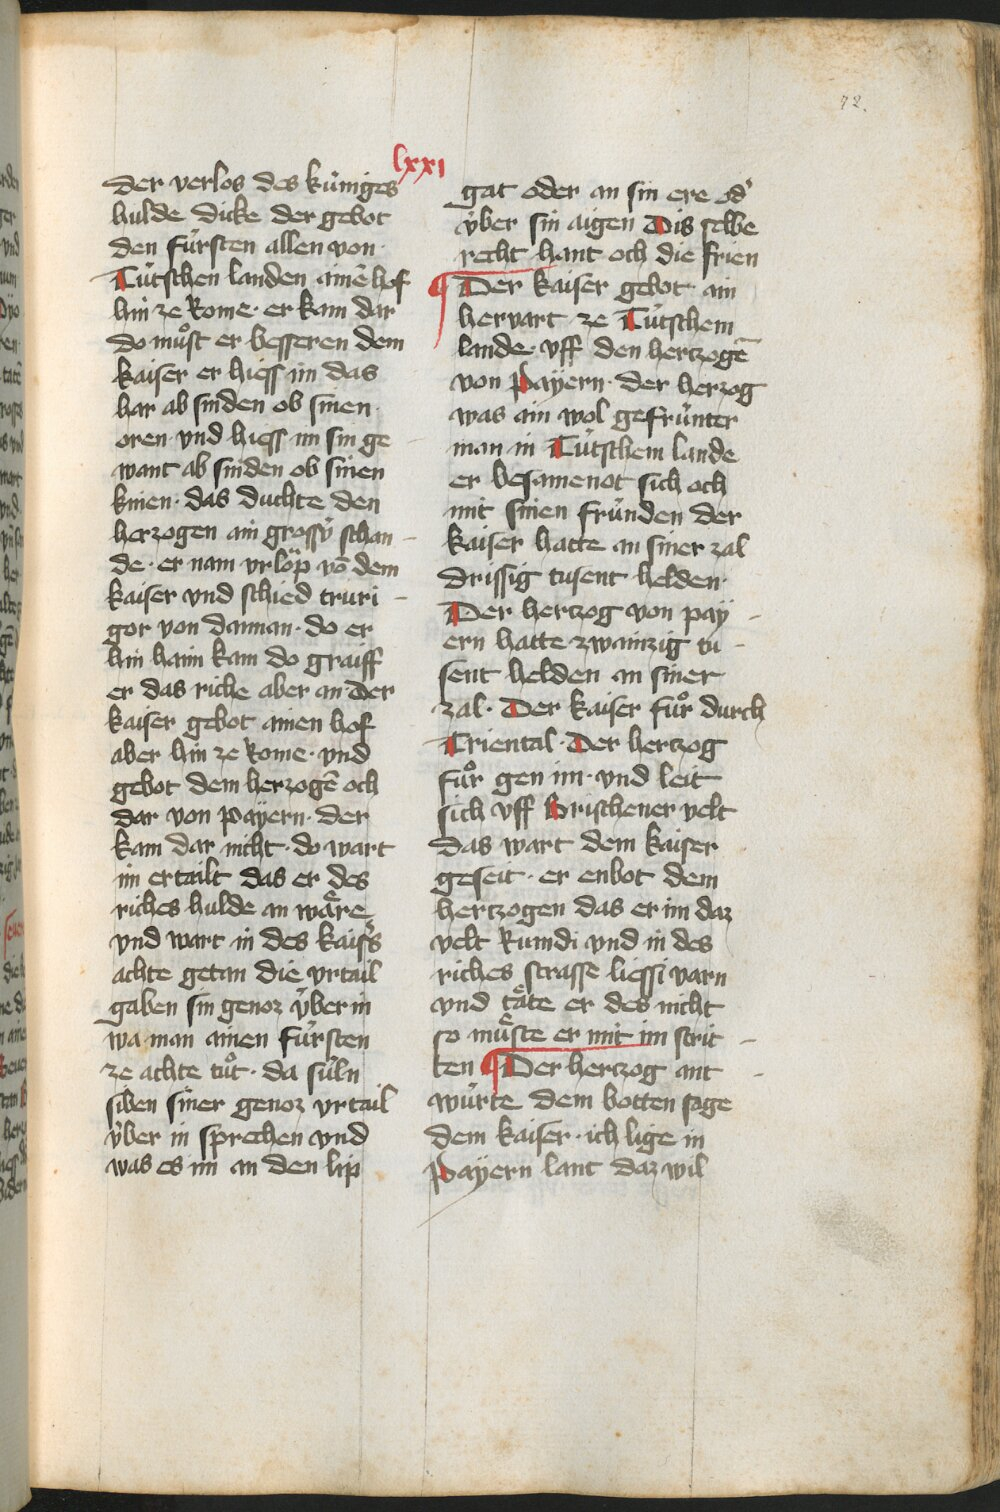 72.
lxxi
der verlos des kúniges
hulde dicke der gebot
den fúrsten allen von
Tútschen landen ainē hof
hin ze Rome · er kam dar
do můst er besseren dem
kaiser er hiess im das
har ab sniden ob sinen
oren · vnd hiess im sin ge
want ab sniden ob sinen
knien · das duchte den
herzogen ain grossú̍ schan
de · er nam vrlöp vō dem
kaiser vnd schied truri
gor von dannan · do er
hin haim kam do graiff
er das riche aber an Der
kaiser gebot ainen hof
aber hin ze Rome · vnd
gebot dem herzogē och
dar von payern · der
kam dar nicht · do wart
im ertailt das er des
riches hulde an wäre
vnd wart in des kaiss̉s
achte getan die vrtail
gaben sin genoz ẏber in
wa man ainen fúrsten
ze achte tůt · da súln
siben siner genoz vrtail
ẏber in sprechen vnd
was es im an den lip
gat oder an sin ere od̉
ẏber sin aigen Dis selbe
recht hant och die frien
¶ Der kaiser gebot ain
hervart ze Tútschem
lande · vff den hertzogē
von Payern · der herzog
was ain wol gefrúnter
man in Tútschem lande
er besamenot sich och
mit sinen frúnden der
kaiser hatte an siner zal
drissig tusent helden ·
Der hertzog von pay
ern hatte zwainzig tu
sent helden an siner
zal · Der kaiser fůr durch
Triental · Der hertzog
fůr gen im · vnd leit
sich vff Brischener velt
das wart dem kaiser
geseit · er enbot dem
hertzogen das er im daz
velt Rumdi vnd in des
riches strasse liessi varn
vnd täte er des nicht
so můste er mit im strit
ten ¶ Der hertzog ant
wúrte dem botten sage
dem kaiser · ich lige in
Payern lant daz wil